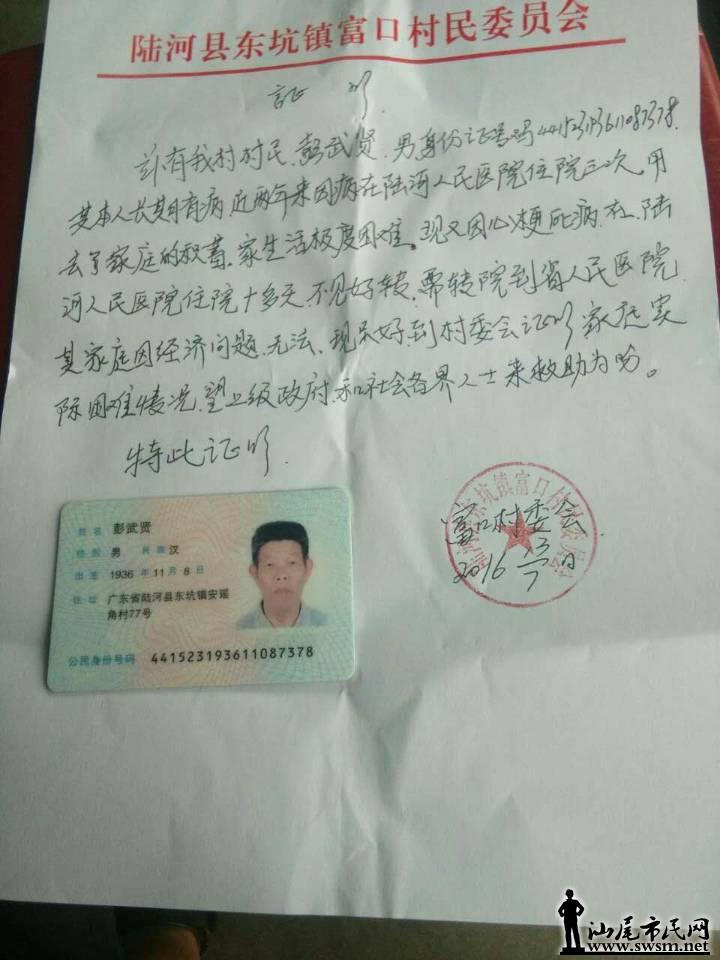 陆河县东坑镇富口村民委员会
证明
兹有我村村民彭武贤,男,身份证号码441523193611087378.
其本人长期有病,近两年来因病在陆河人民医院住院三次,用
去了家庭的积蓄、家生活极度困难。现又因心梗死病、在、陆
河人民医院住院十多天,不见好转,需转院到省人民医院
其家庭因经济问题、无法、现只好到村委会证明家庭实
际困难情况,望上级政府、和社会各界人士来救助为盼。
特此证明.
富口村委会
2016
姓名 彭武贤
性别 男 民族 汉
出生 1936 年 11 月 8 日
住址 广东省陆河县东坑镇安瑶
角村77号
公民身份号码 441523193611087378
汕尾市民网
www.swsm.net